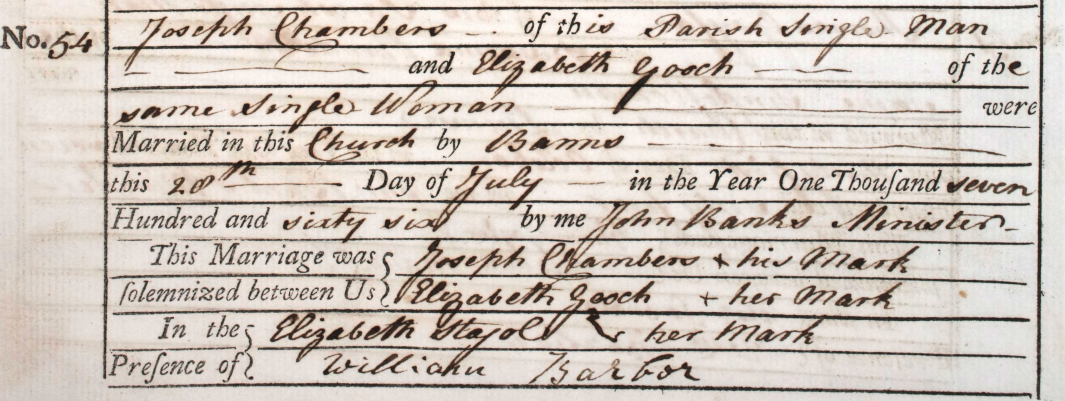 No. 54 Joseph Chambers of this Parish Single Man
and Elizabeth Gooch of the
same Single Woman were
Married in this Church by Banns
this 28th Day of July in the Year One Thouſand seven
Hundred and sixty six by me John Banks Minister
This Marriage was Joseph Chambers + his Mark
ſolemnized between Us Elizabeth Gooch + her Mark
In the Elizabeth her Mark
Preſence of William Barbor